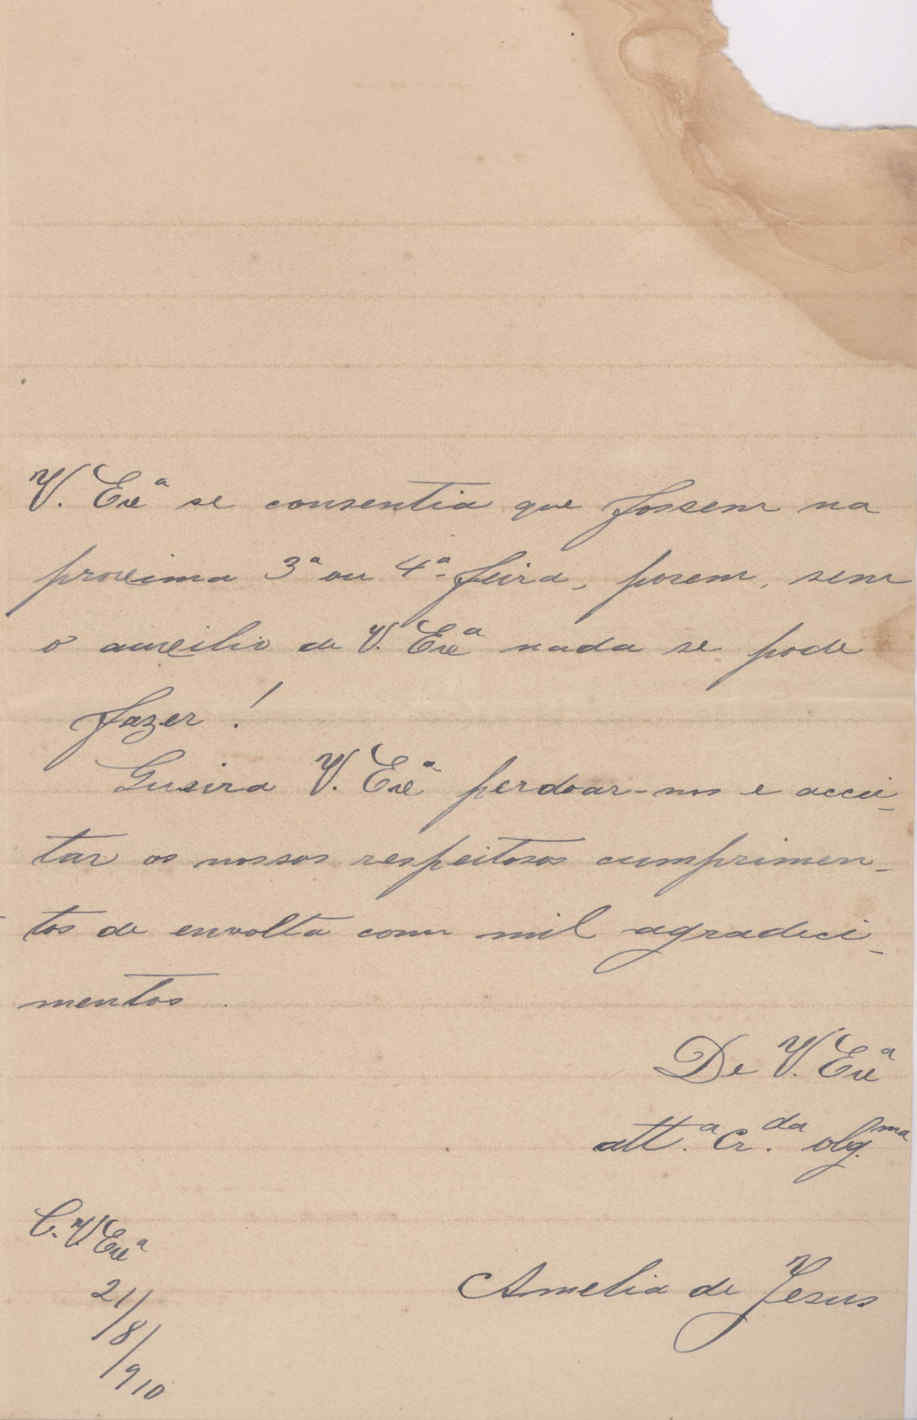 V. Exª se consentia que fossem na
proxima 3ª ou 4ª feira, porem, sem
o auxilio de V. Exª nada se pode
fazer!
Queira V. Exª perdoar-nos e accei-
tar os nossos respeitosos cumprimen-
tos de envolta com mil agradeci-
mentos.
De V. Exª
att.ª Cr.da obg.ma
C. V Exª
21/8/910
Amelia de Jesus